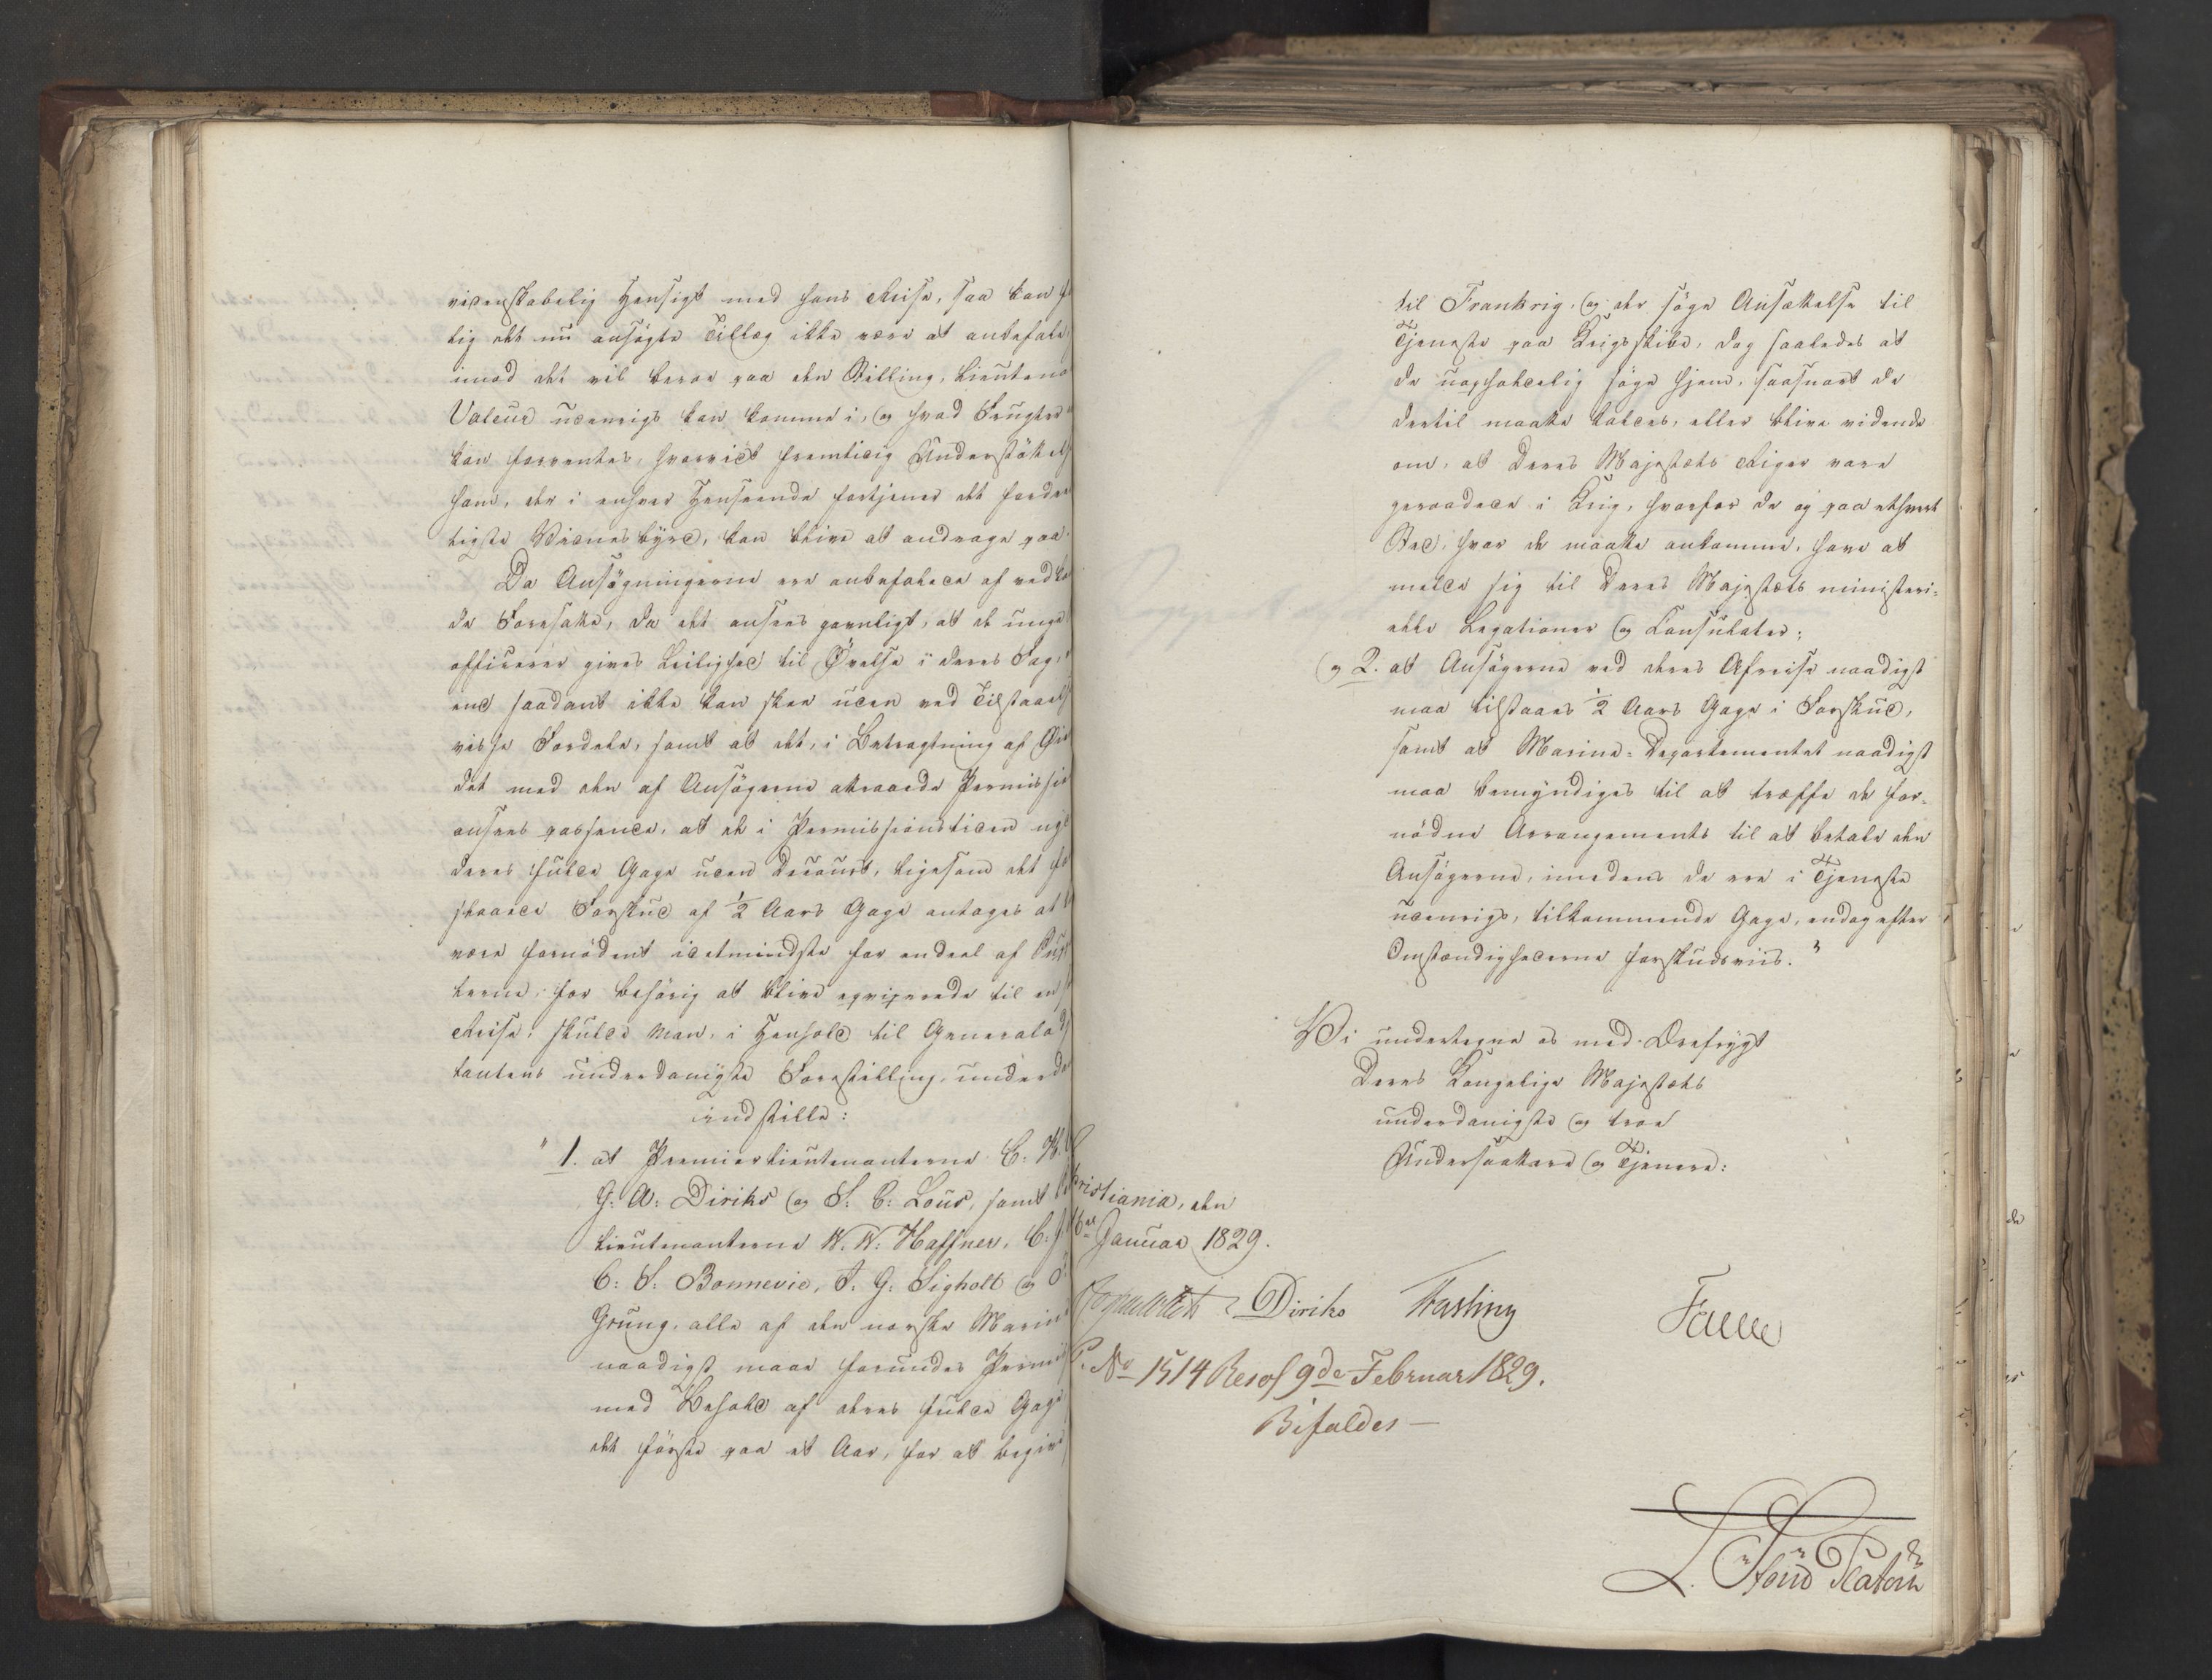 videnskabelig Hensigt med hans Reise, saa kan
lig det nu ansøgte Tillæg ikke være at anbefale,
imod det vil beroe paa den Stilling, Lieutena
Valeur udenrigs kan komme i, og hvad Frugter
kan forventes, hvorvidt fremtidig Understøttels
ham, der i enhver Henseende fortjener det fordee
ligste Vidnesbyrd, kan blive at andrage paa.
Da Ansøgningerne ere anbefalede af vedko
de Foresatte, da det ansees gavnligt, at de unge
Officerer gives Leilighed til Øvelse i deres Fag,
end saadant ikke kan skee uden ved Tilstaaels
visse Fordele, samt at det, i Betragtning af Øie
det med den af Ansøgerne attraaede Permissio
ansees passende, at de i Permissionstiden nyd
deres fulde Gage uden Decourt, ligesom det
staaede Forskud af ½ Aars Gage antages at
være fornødent idetmindste for endeel af
terne, for behørig at blive eqviperede til en
Reise; skulde man, i Henhold til Generalad
tantens underdanigste Forestilling, underda
indstille:
" 1. at Premierlieutenanterne C. H.
G. A. Diriks og S. C. Lous, samt
Lieutenanterne W. W. Haffner, C.
C. S. Bonnevie, F. G. Sigholt og O
Grung, alle af den norske Marine
naadigst maae forundes Permis
med Behold af deres fulde Gage
det første paa et Aar, for at begive
til Frankrig, og der søge Ansættelse til
Tjeneste paa Krigsskibe, dog saaledes at
de uopholdelig søge hjem, saasnart de
dertil maatte kaldes, eller blive vidende
om, at Deres Majestæts Riger vare
geraadede i Krig, hvorfor de og paa ethvert
Sted, hvor de maatte ankomme, have at
melde sig til Deres Majestæts ministeri-
elle Legationer og Consulater;
og 2. at Ansøgerne ved deres Afreise naadigst
maa tilstaaes ½ Aars Gage i Forskud,
samt at Marine-Departementet naadigst
maa bemyndiges til at træffe de for-
nødne Arrangements til at betale den
Ansøgerne, imedens de ere i Tjeneste
udenrigs, tilkommende Gage, endog efter
Omstændighederne forskudsviis."
Vi undertegne os med Ærefrygt
Deres Kongelige Majestæts
underdanigste og troe
Undersaattere og Tjenere:
Christiania, den
16de Januar 1829.
Diriks Fasting
P. No 1514 Resol 9de Februar 1829.
Bifaldes —